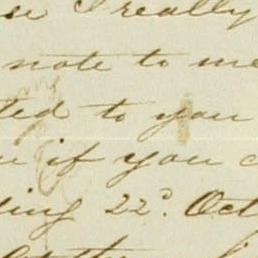 se I really
note to me
ted to you
if you c
ding 22d. Oct